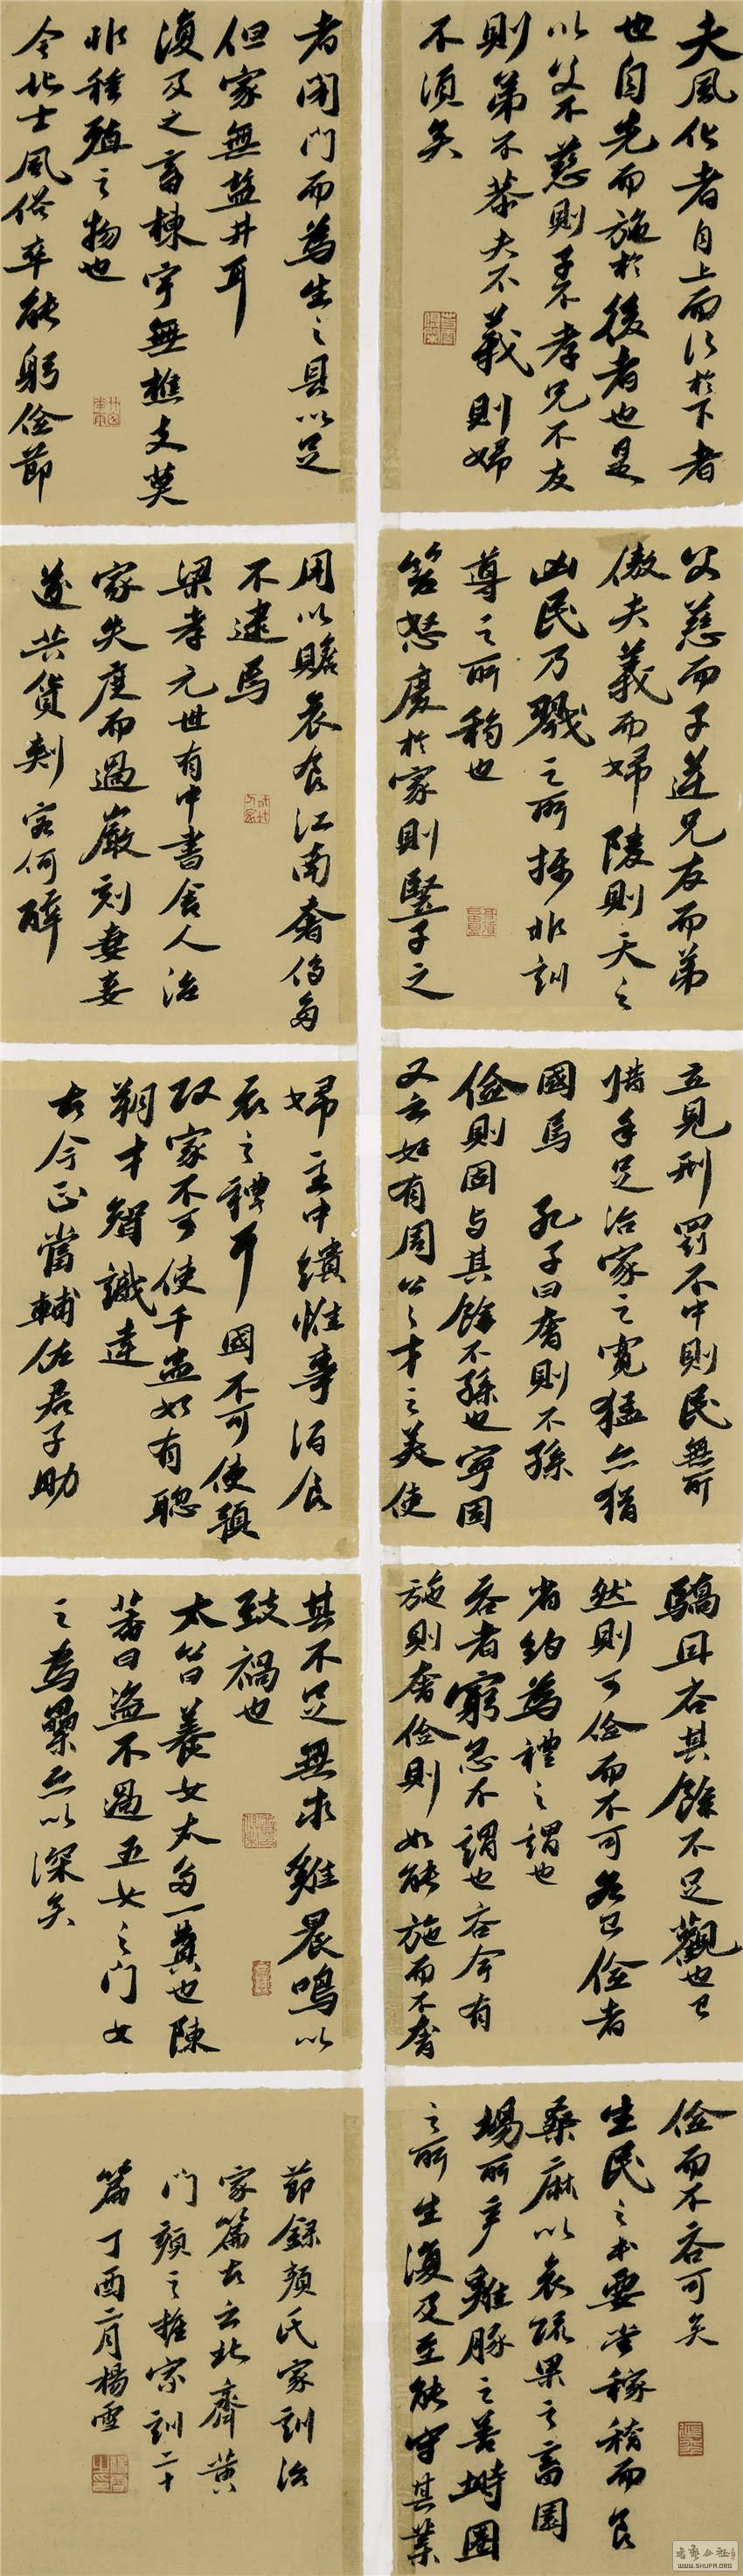 夫風化者自上而行於下者
也自先而施於後者也是
以父不慈則子不孝兄不友
則弟不恭夫不義則婦
不順矣
父慈而子逆兄友而弟
傲夫義而婦陵則天之
凶民乃戮之所攝非訓
導之所移也
笞怒廢於家則豎子之
立見刑罰不中則民無所
措手足治家之寬猛亦猶
國焉 孔子曰奢則不孫
儉則固与其餘不孫也寧固
又云如有周公之才之美使
驕且吝其餘不足觀也已
然則可儉而不可吝已儉者
省約為禮之謂也
吝者窮急不謂也吝今有
施則奢儉則如能施而不奢
儉而不吝可矣
生民之本要當稼穡而食
桑麻以衣蔬果之畜園
場所產雞豚之善塒圈
之所生復及至能守其業
者閉門而為生之具以足
但家無鹽井耳
復及之畜棟宇無樵支莫
非種殖之物也
今北士風俗卒能躬儉節
用以贍衣食江南奢侈多
不逮焉
梁孝元世有中書舍人治
家失度而過嚴刻妻妾
遂共貨刺客伺醉
婦主中饋惟事酒食
衣之禮耳國不可使預
政家不可使干蠱如有聰
朗才智識達
古今正當輔佐君子助
其不足無求雞晨鳴以
致禍也
太公曰養女太多一費也陳
蕃曰盜不過五女之門女
之為累亦以深矣
節錄顏氏家訓治
家篇古云北齊黃
門顏之推家訓二十
篇丁酉二月楊雪
WWW.SHUFA.ORG